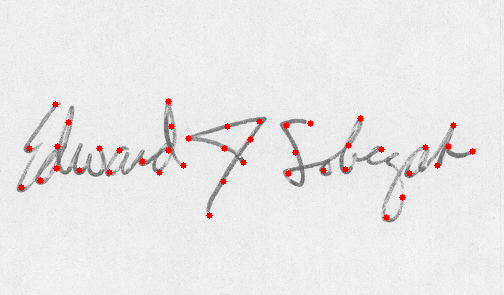 Edward J Sobczak